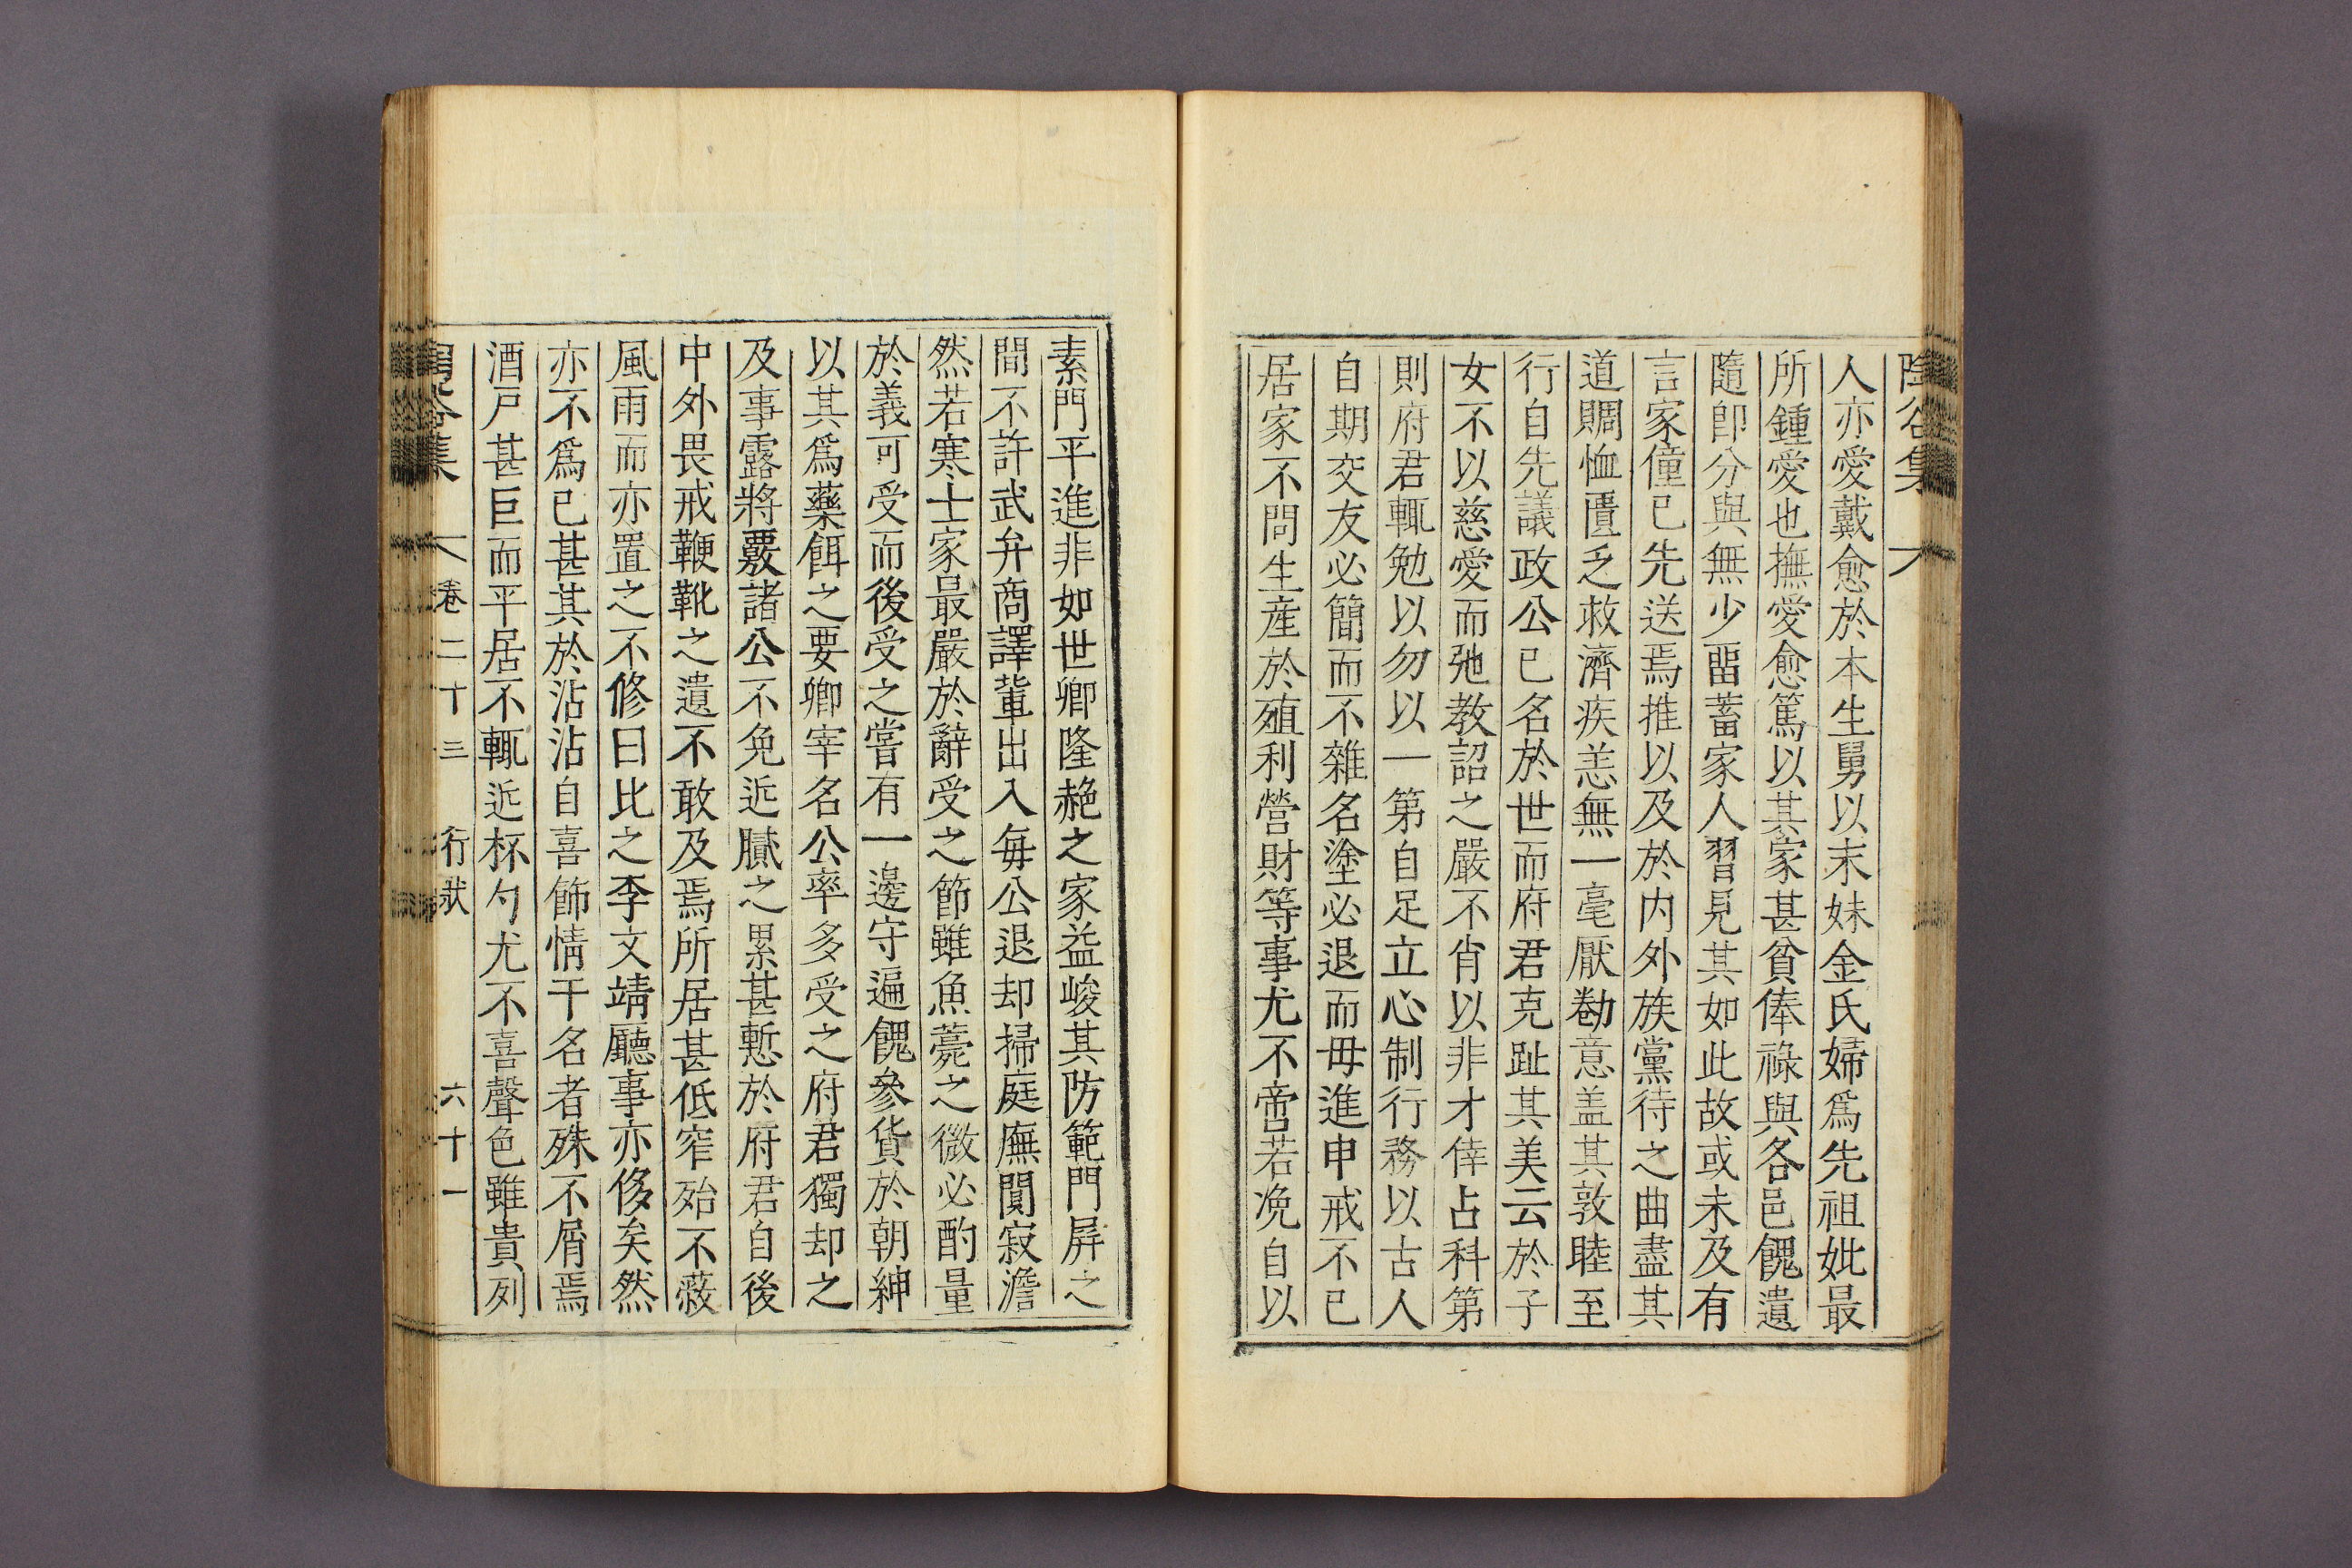 人亦愛戴愈於本生舅以末妹金氏婦爲先祖妣最
所鍾愛也撫愛愈篤以其家甚貧俸祿與各邑餽遺
隨卽分與無少畱蓄家人習見其如此故或未及有
言家僮已先送焉推以及於內外族黨待之曲盡其
道賙恤匱乏救濟疾恙無一毫厭勌意盖其敦睦至
行自先議政公已名於世而府君克趾其美云於子
女不以慈愛而弛敎詔之嚴不肖以非才倖占科第
則府君輒勉以勿以一第自足立心制行務以古人
自期交友必簡而不雜名塗必退而毋進申戒不已
居家不問生産於殖利營財等事尤不啻若浼自以
素門平進非如世卿隆赩之家益峻其防範門屛之
間不許武弁商譯輩出入每公退却掃庭廡闃寂澹
然若寒士家最嚴於辭受之節雖魚薧之微必酌量
於義可受而後受之嘗有一邊守遍餽參貨於朝紳
以其爲藥餌之要卿宰名公率多受之府君獨却之
及事露將覈諸公不免近贓之累甚慙於府君自後
中外畏戒鞭靴之遺不敢及焉所居甚低窄殆不蔽
風雨而亦置之不修曰比之李文靖廳事亦侈矣然
亦不爲已甚其於沾沾自喜飾情干名者殊不屑焉
酒戶甚巨而平居不輒近杯勺尤不喜聲色雖貴列
卷二十三 行狀 六十一